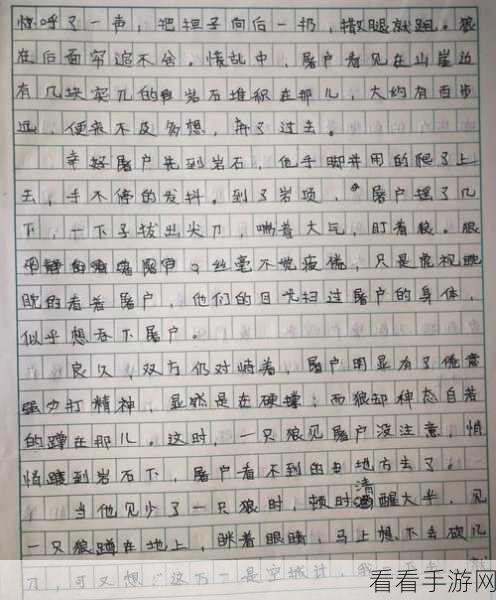 惊呼了一声，把担子向后一扔，撒腿就跑。狼
在后面穷追不舍。慌乱中，屠户看见在山崖边
有几块突兀的岩石堆积在那儿，大约有百步
远，便来不及多想，奔了过去。
幸好屠户先到岩石，他手脚并用的爬了上
去，手不停的发抖。到了岩顶，屠户摇了几
下，一下子拔出尖刀，喘着大气，盯着狼。狼
丝毫不觉疲倦，只是虎视眈
眈的看着屠户，他们的目光扫过屠户的身体，
似乎想吞下屠户。
良久，双方仍对峙着，屠户明显为了倦意
强力打精神，显然是在硬撑；而狼却神态自若
的蹲在那儿。这时，一只狼见屠户没注意，悄
悄踱到岩石下，屠户看不到的地方去了
当他见少了一只狼时，顿时清醒大半，见
一只狼蹲在地上，眯着眼睛，马上想下去砍几
刀，可又想：“这万一是空城计，我一下去
看看手游网
www.kkssyy.com